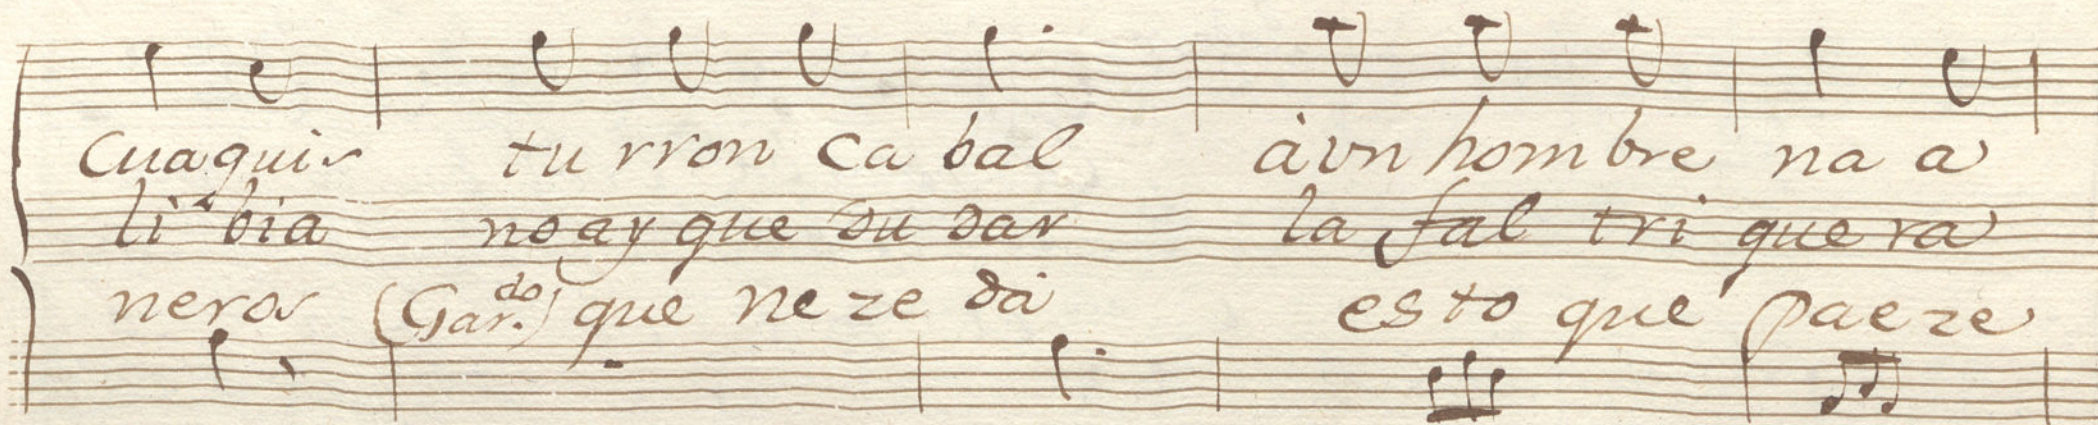 Cuaquir tu rron Ca bal à vn hom bre na a
li bia no ay que du dar la fal tri que ra
neros (Gar.do) que ne ze dà es to que pae ze